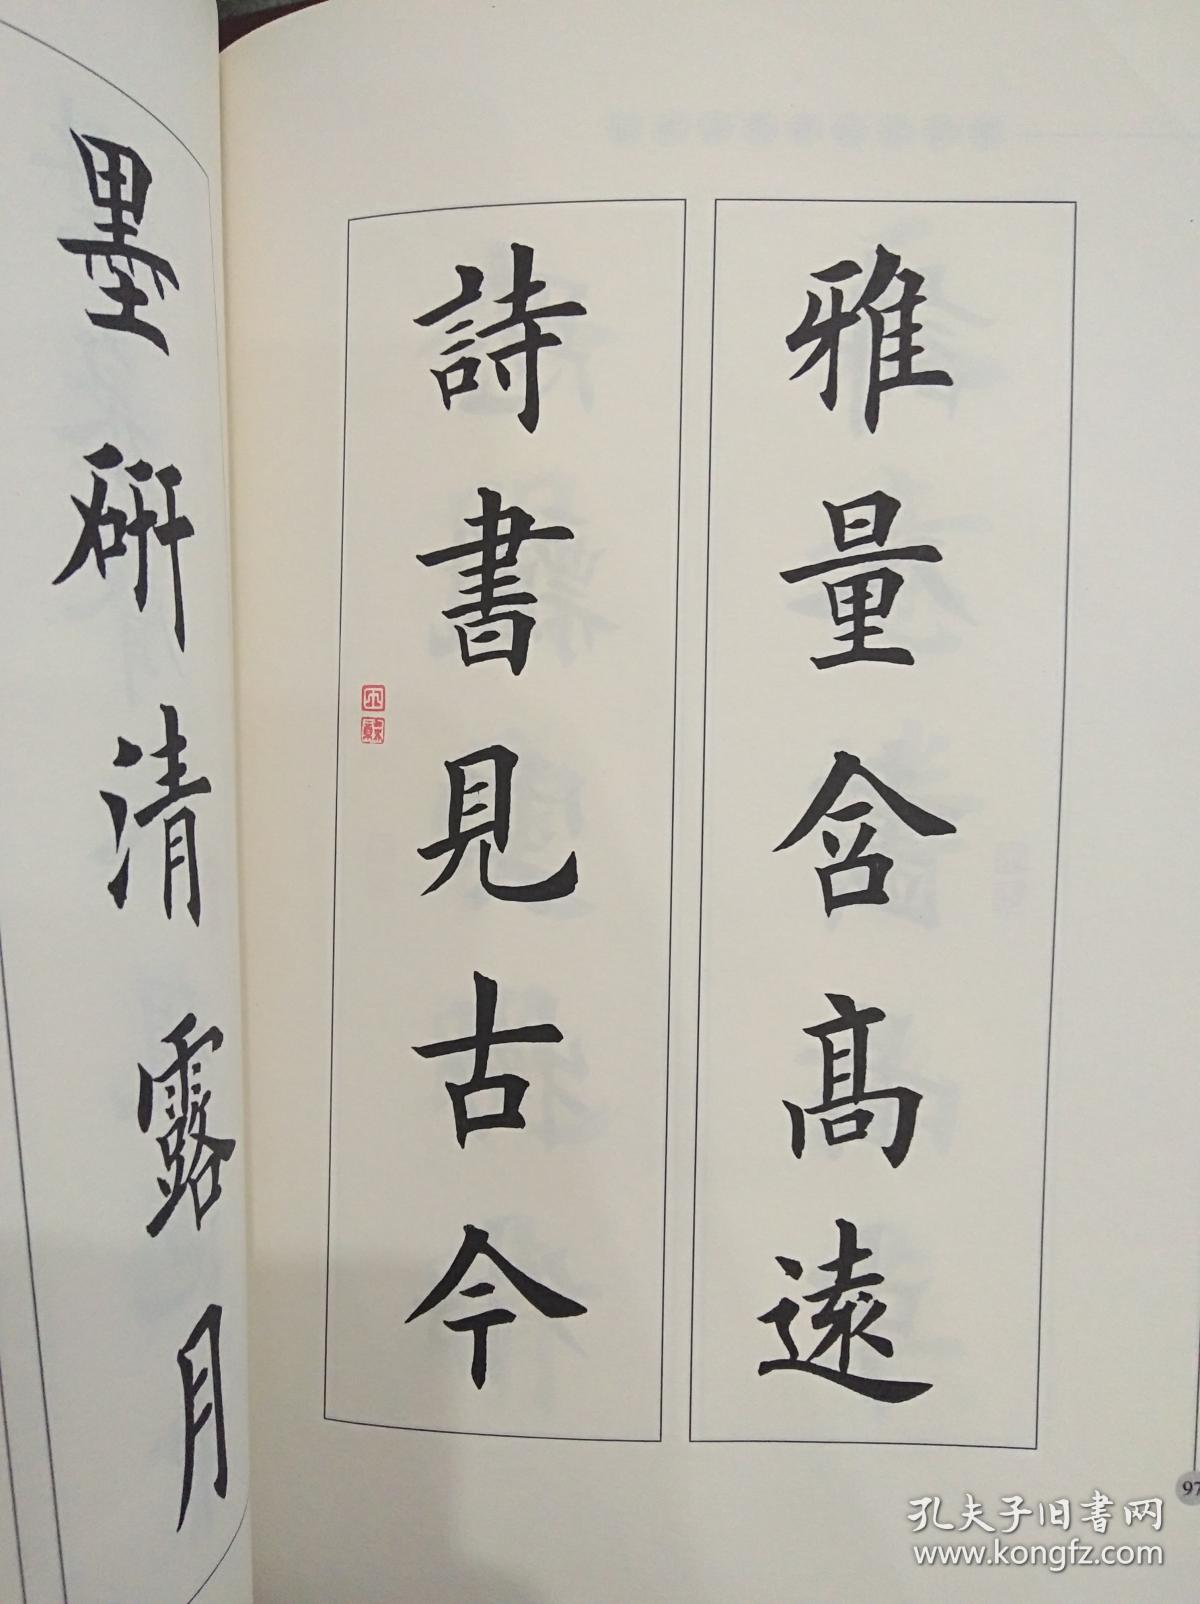 雅量含高遠
詩書見古今
墨研清露月
97
孔夫子旧书网
www.kongfz.com